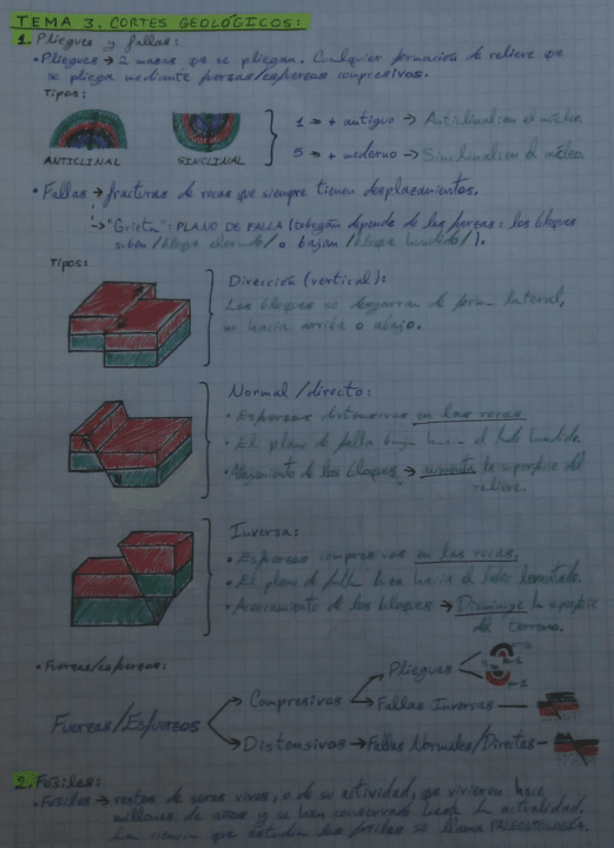 TEMA 3. CORTES GEOLÓGICOS:
1. Pliegues y fallas:
• Pliegues → 2 masas que se pliegan. Cualquier formación de relieve que
se pliega mediante fuerzas/esfuerzos compresivos.
Tipos:
1 → + antiguo → Anticlinal: en el núcleo.
5 → + moderno → Sinclinal: en el núcleo.
ANTICLINAL SINCLINAL
• Fallas → fracturas de rocas que siempre tienen desplazamientos.
→ "Grieta": PLANO DE FALLA (tobogán depende de las fuerzas: los bloques
suben /bloque elevado/ o bajan /bloque hundido/).
Tipos:
Dirección (vertical):
Los bloques se desgarran de forma lateral,
no hacia arriba o abajo.
Normal/directo:
• Esfuerzos distensivos en las rocas.
• El plano de falla baja hacia el lado hundido.
• Alejamiento de los bloques → aumenta la superficie del
relieve.
Inversa:
• Esfuerzos compresivos en las rocas.
• El plano de falla hacia el labio levantado.
• Acercamiento de los bloques → Disminuye la superficie
del terreno.
• Fuerzas/esfuerzos:
Fuerzas/Esfuerzos
Compresivos
Pliegues
Fallas Inversas
Distensivos → Fallas Normales/Directas
2. Fósiles:
• Fósiles → restos de seres vivos, o de su actividad, que vivieron hace
millones de años y se han conservado hasta la actualidad.
La ciencia que estudia los fósiles se llama PALEONTOLOGÍA.